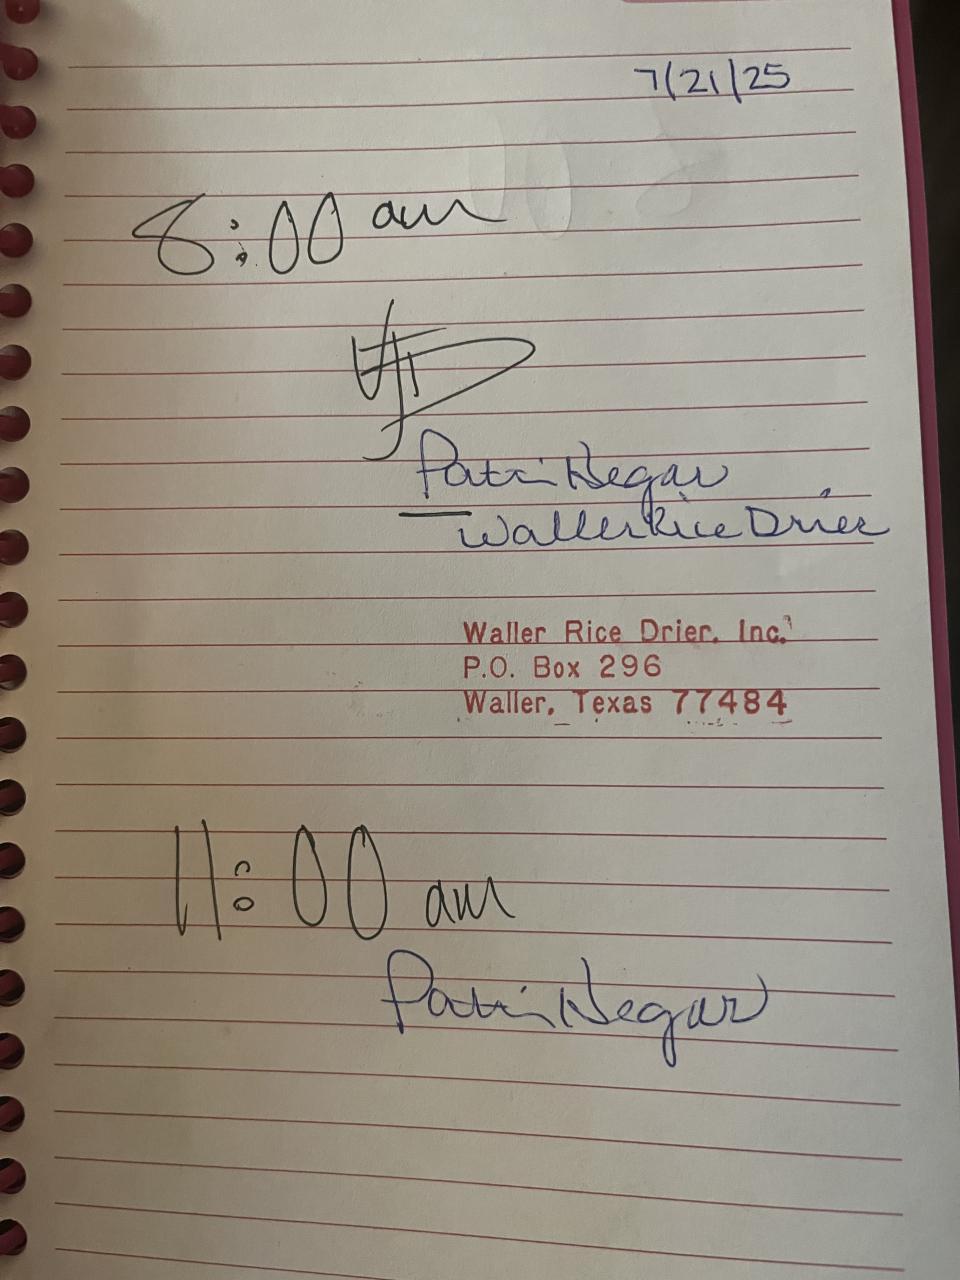 7/21/25
8:00 am
Patti Hegar
Waller Rice Drier
Waller Rice Drier, Inc.
P.O. Box 296
Waller, Texas 77484
11:00 am
Patti Hegar